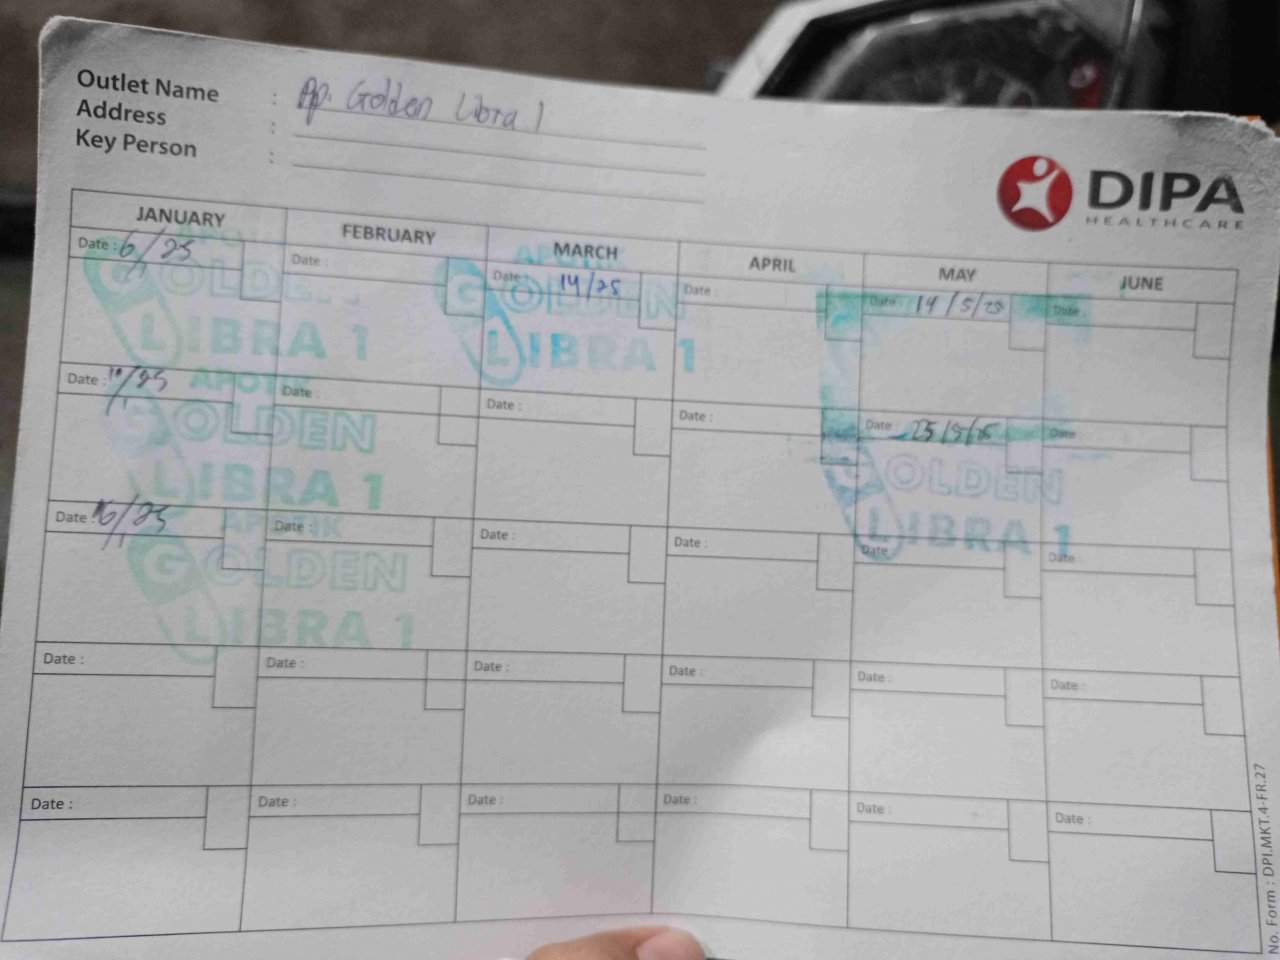 Outlet Name : Ap. Golden Libra 1
Address :
Key Person :
DIPA
HEALTHCARE
JANUARY FEBRUARY MARCH APRIL MAY JUNE
Date : 6/25 Date : Date : 14/25 Date : Date : 14/5/25 Date :
APOTIK GOLDEN LIBRA 1
APOTIK GOLDEN LIBRA 1
Date : /25 Date : Date : Date : Date : 25/5/25 Date
APOTIK GOLDEN LIBRA 1
GOLDEN LIBRA 1
Date : 16/25 Date : Date : Date : Date Date :
APOTIK GOLDEN LIBRA 1
Date : Date : Date : Date : Date : Date :
Date : Date : Date : Date : Date : Date :
No. Form : DPI.MKT.4-FR.27